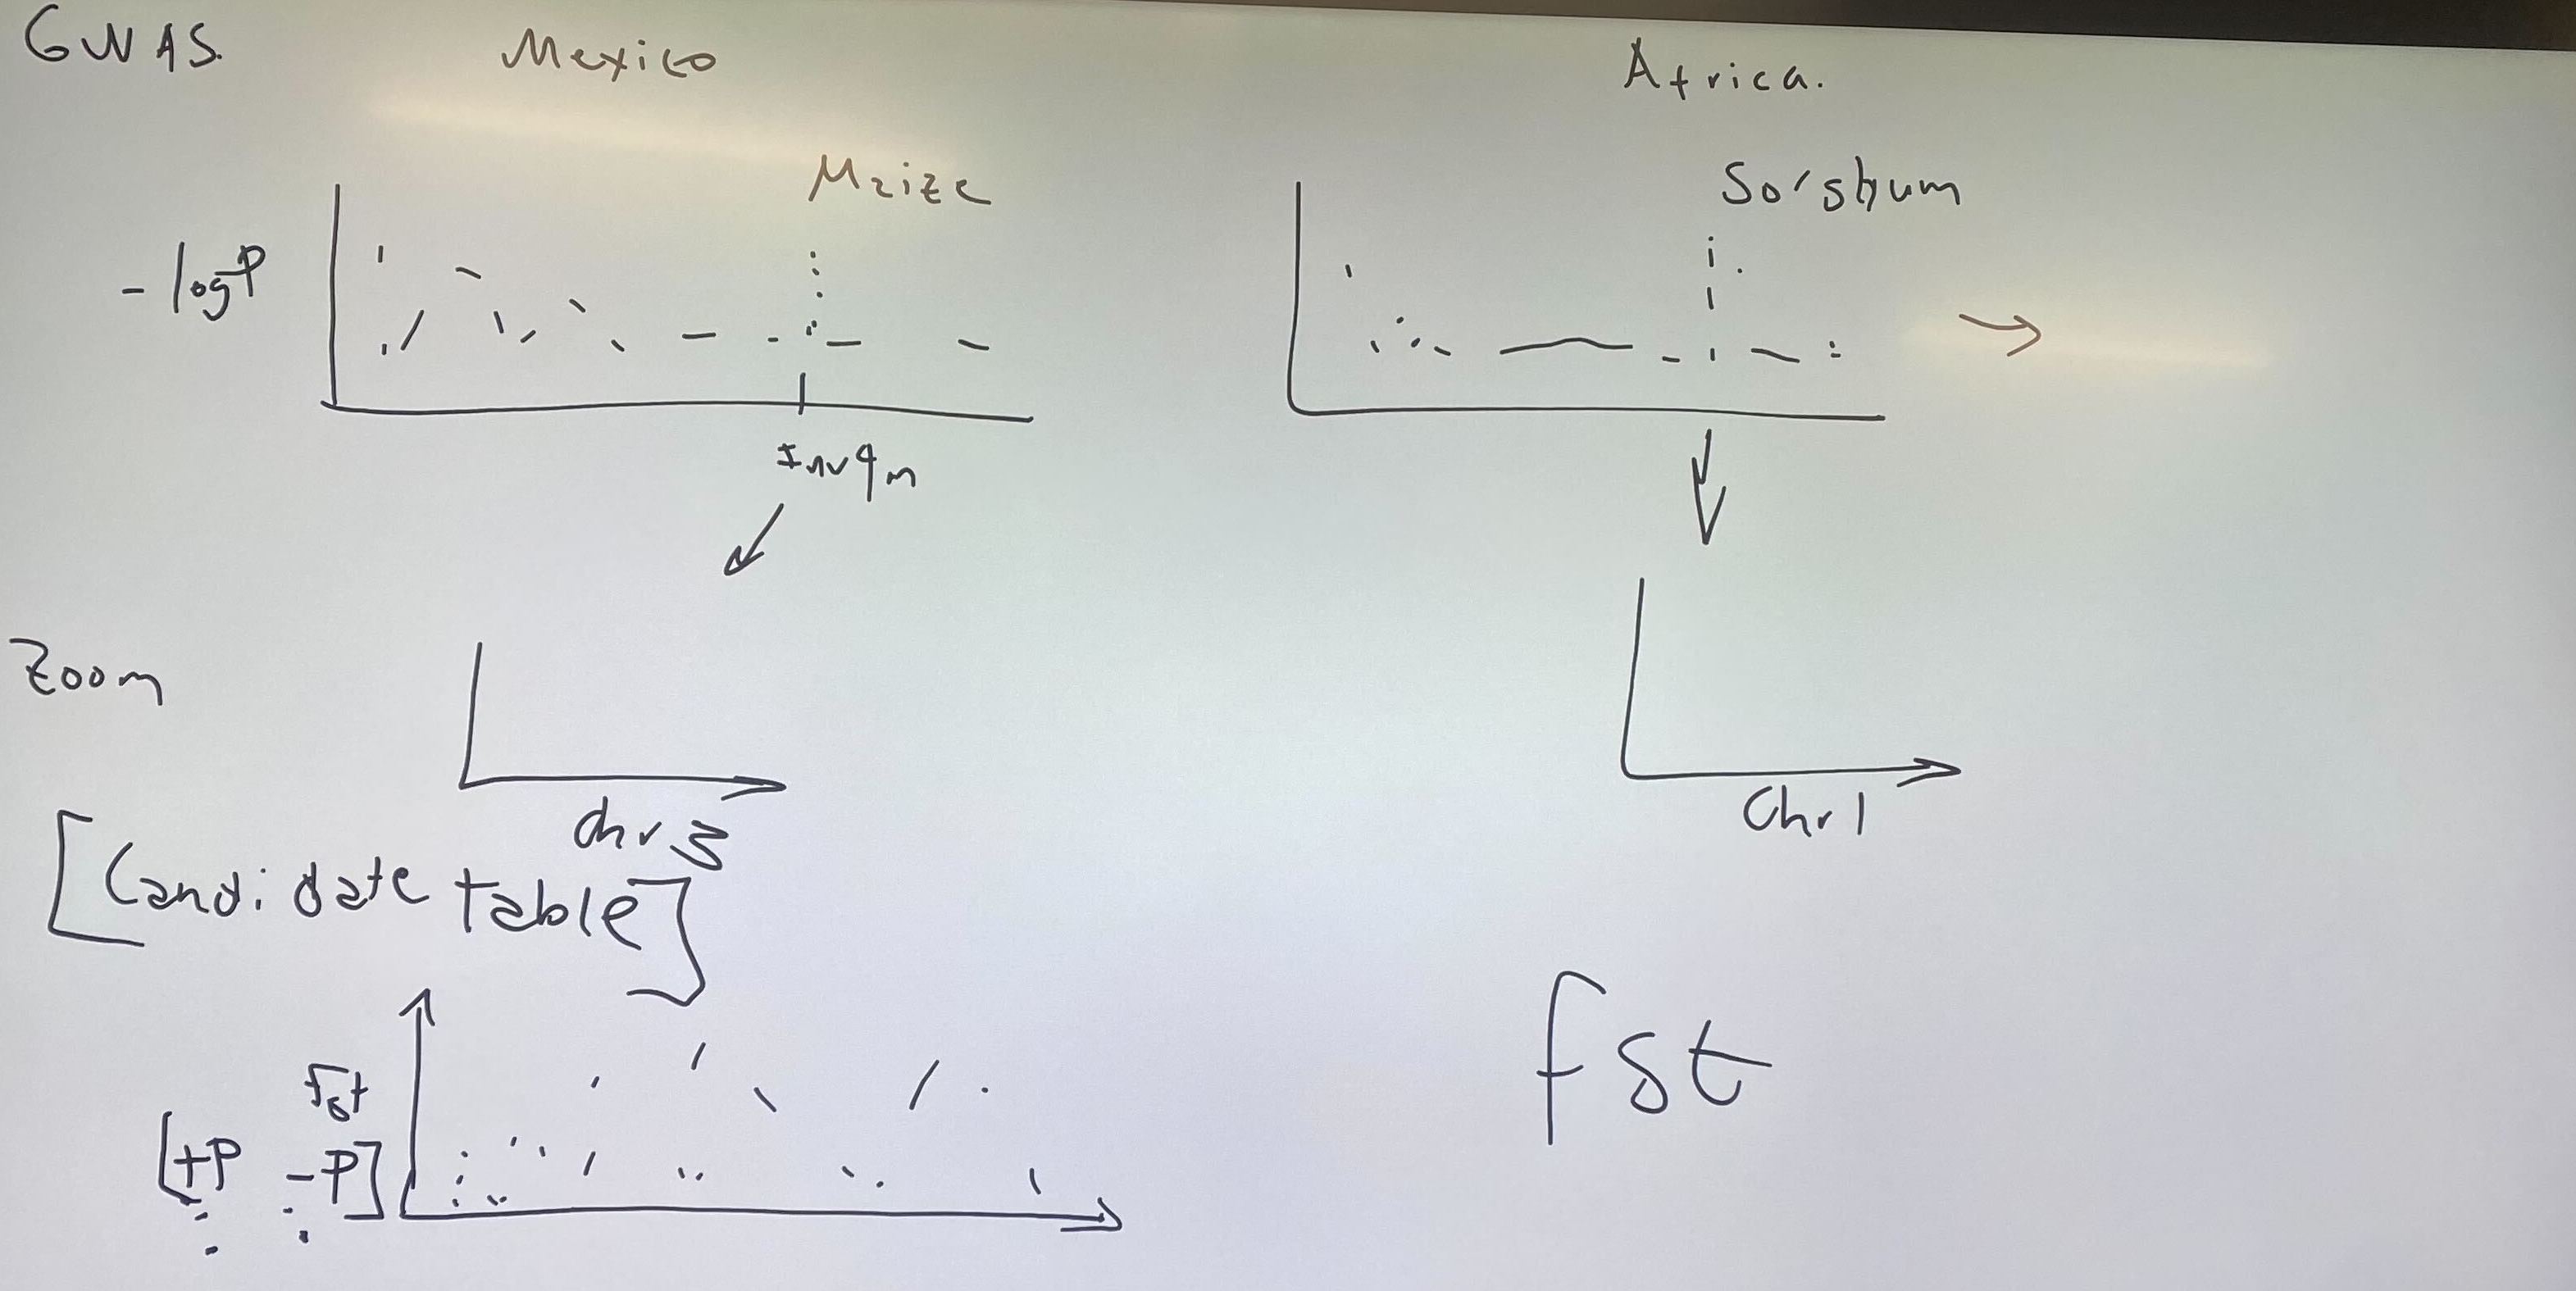 GWAS.
Mexico
Africa.
Maize
Sorghum
- logP
Inv4m
Zoom
Chr 3
Chr 1
[Candidate table]
Fst
[+P -P]
fst